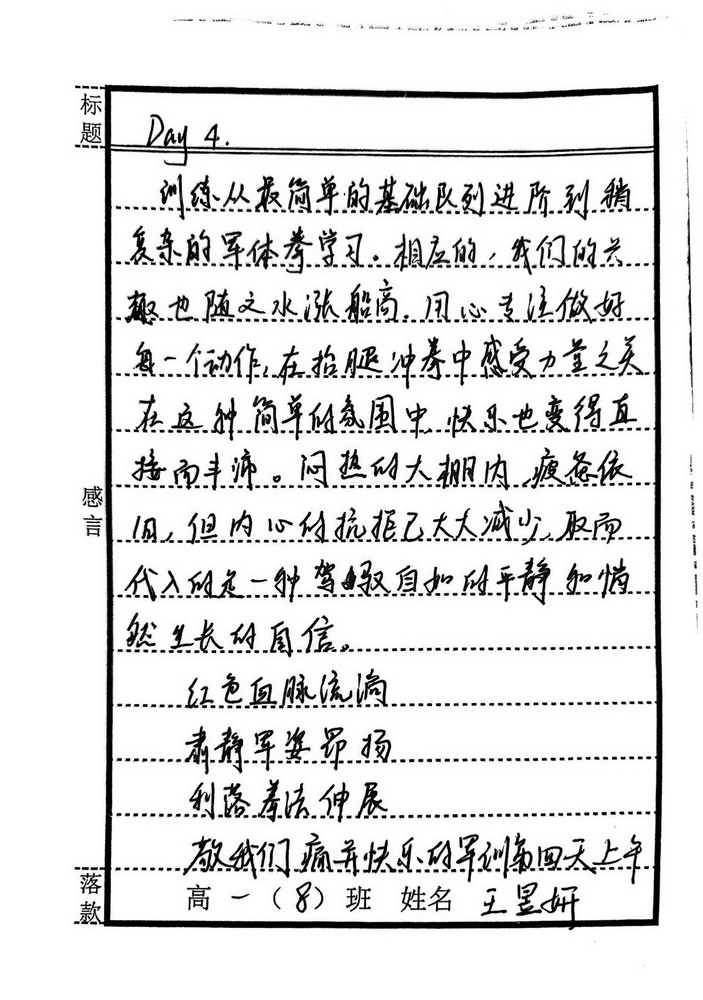 标题
Day 4.
训练从最简单的基础队列进阶到稍
复杂的军体拳学习。相应的，我们的兴
趣也随之水涨船高。用心专注做好
每一个动作，在抬腿冲拳中感受力量之美
在这种简单的氛围中，快乐也变得直
接而丰沛。闷热的大棚内，疲惫依
感言
旧，但内心的抗拒已大大减少，取而
代入的是一种驾驭自如的平静和悄
然生长的自信。
红色血脉流淌
肃静军姿昂扬
利落拳法伸展
敬我们痛并快乐的军训第四天上午
落款
高一（8）班 姓名 王昱妍